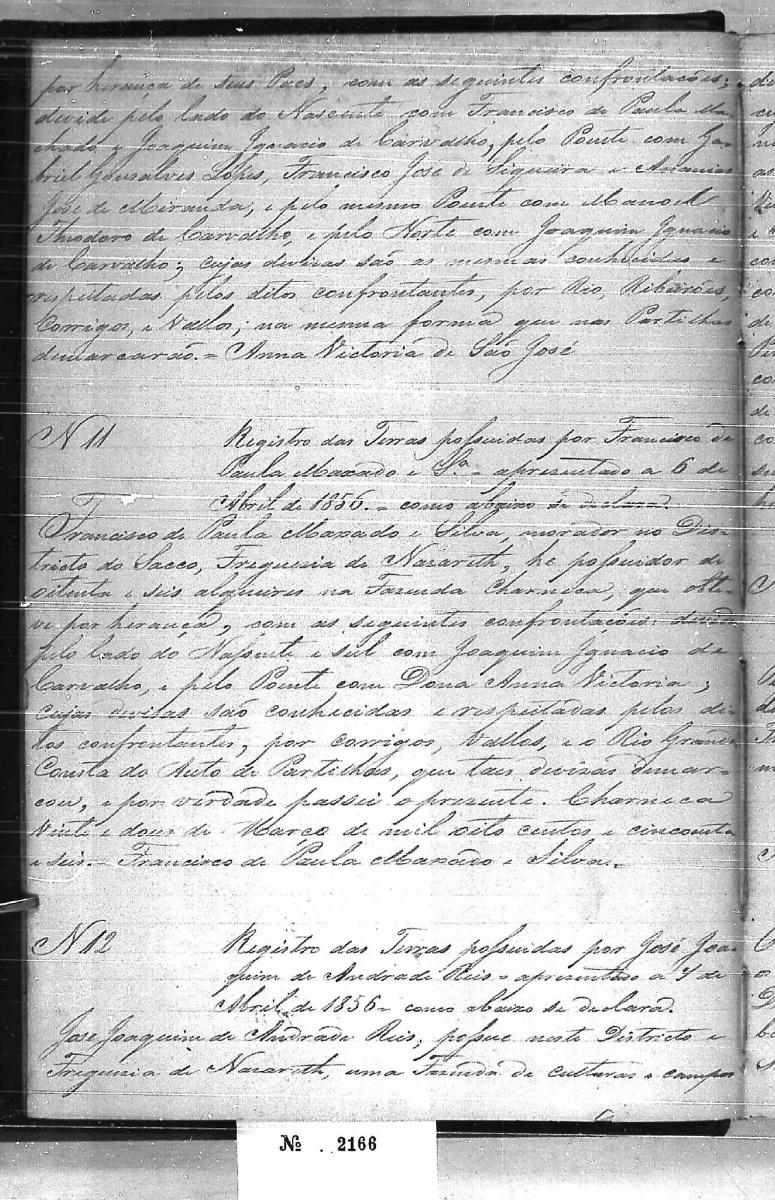 por herança de seus Paes, com as seguintes confrontacões;
divide pelo lado do Nascente com Francisco de Paula Ma-
chado, e Joaquim Ignacio de Carvalho, pelo Poente com Ga-
briel Gonsalves Lopes, Francisco José de Siqueira e Ananias
José de Miranda, e pelo mesmo Poente com Manoel
Theodoro de Carvalho, e pelo Norte com Joaquim Ignacio
de Carvalho; cujas divizas são as mesmas conhecidas e
respeitadas pelos ditos confrontantes, por Rio, Ribeirões,
Corrigos, e Vallos; na mesma forma que nas Partilhas
demarcarão. = Anna Victoria de São José
N 11 Registro das Terras possuidas por Francisco de
Paula Maxado e Sª - apresentado a 6 de
Abril de 1856. - como abaixo se declara.
Francisco de Paula Maxado e Silva, morador no Dis-
tricto do Sacco, Freguezia de Nazareth, he possuidor de
oitenta e seis alqueires na Fazenda Charneca, que obte-
ve por herança, com as seguintes confrontações: divide
pelo lado do Nassente e sul com Joaquim Ignacio de
Carvalho, e pelo Poente com Dona Anna Victoria;
Cujas divisas são conhecidas e respeitadas pelos di-
tos confrontantes, por corrigos, Vallos, e o Rio Grande
Consta do Auto de Partilhas, que taes divizas demar-
cou, e por verdade passei o prezente. Charneca
Vinte e dous de Março de mil oito centos e cincoenta
e seis. - Francisco de Paula Maxado e Silva.
N 12 Registro das Terras possuidas por José Joa-
quim de Andrade Reis - apresentado a 7 de
Abril de 1856 - como abaixo se declara.
José Joaquim de Andrade Reis, possue neste Districto e
Freguezia de Nazareth, uma Fazenda de culturas e campos
Nº 2166